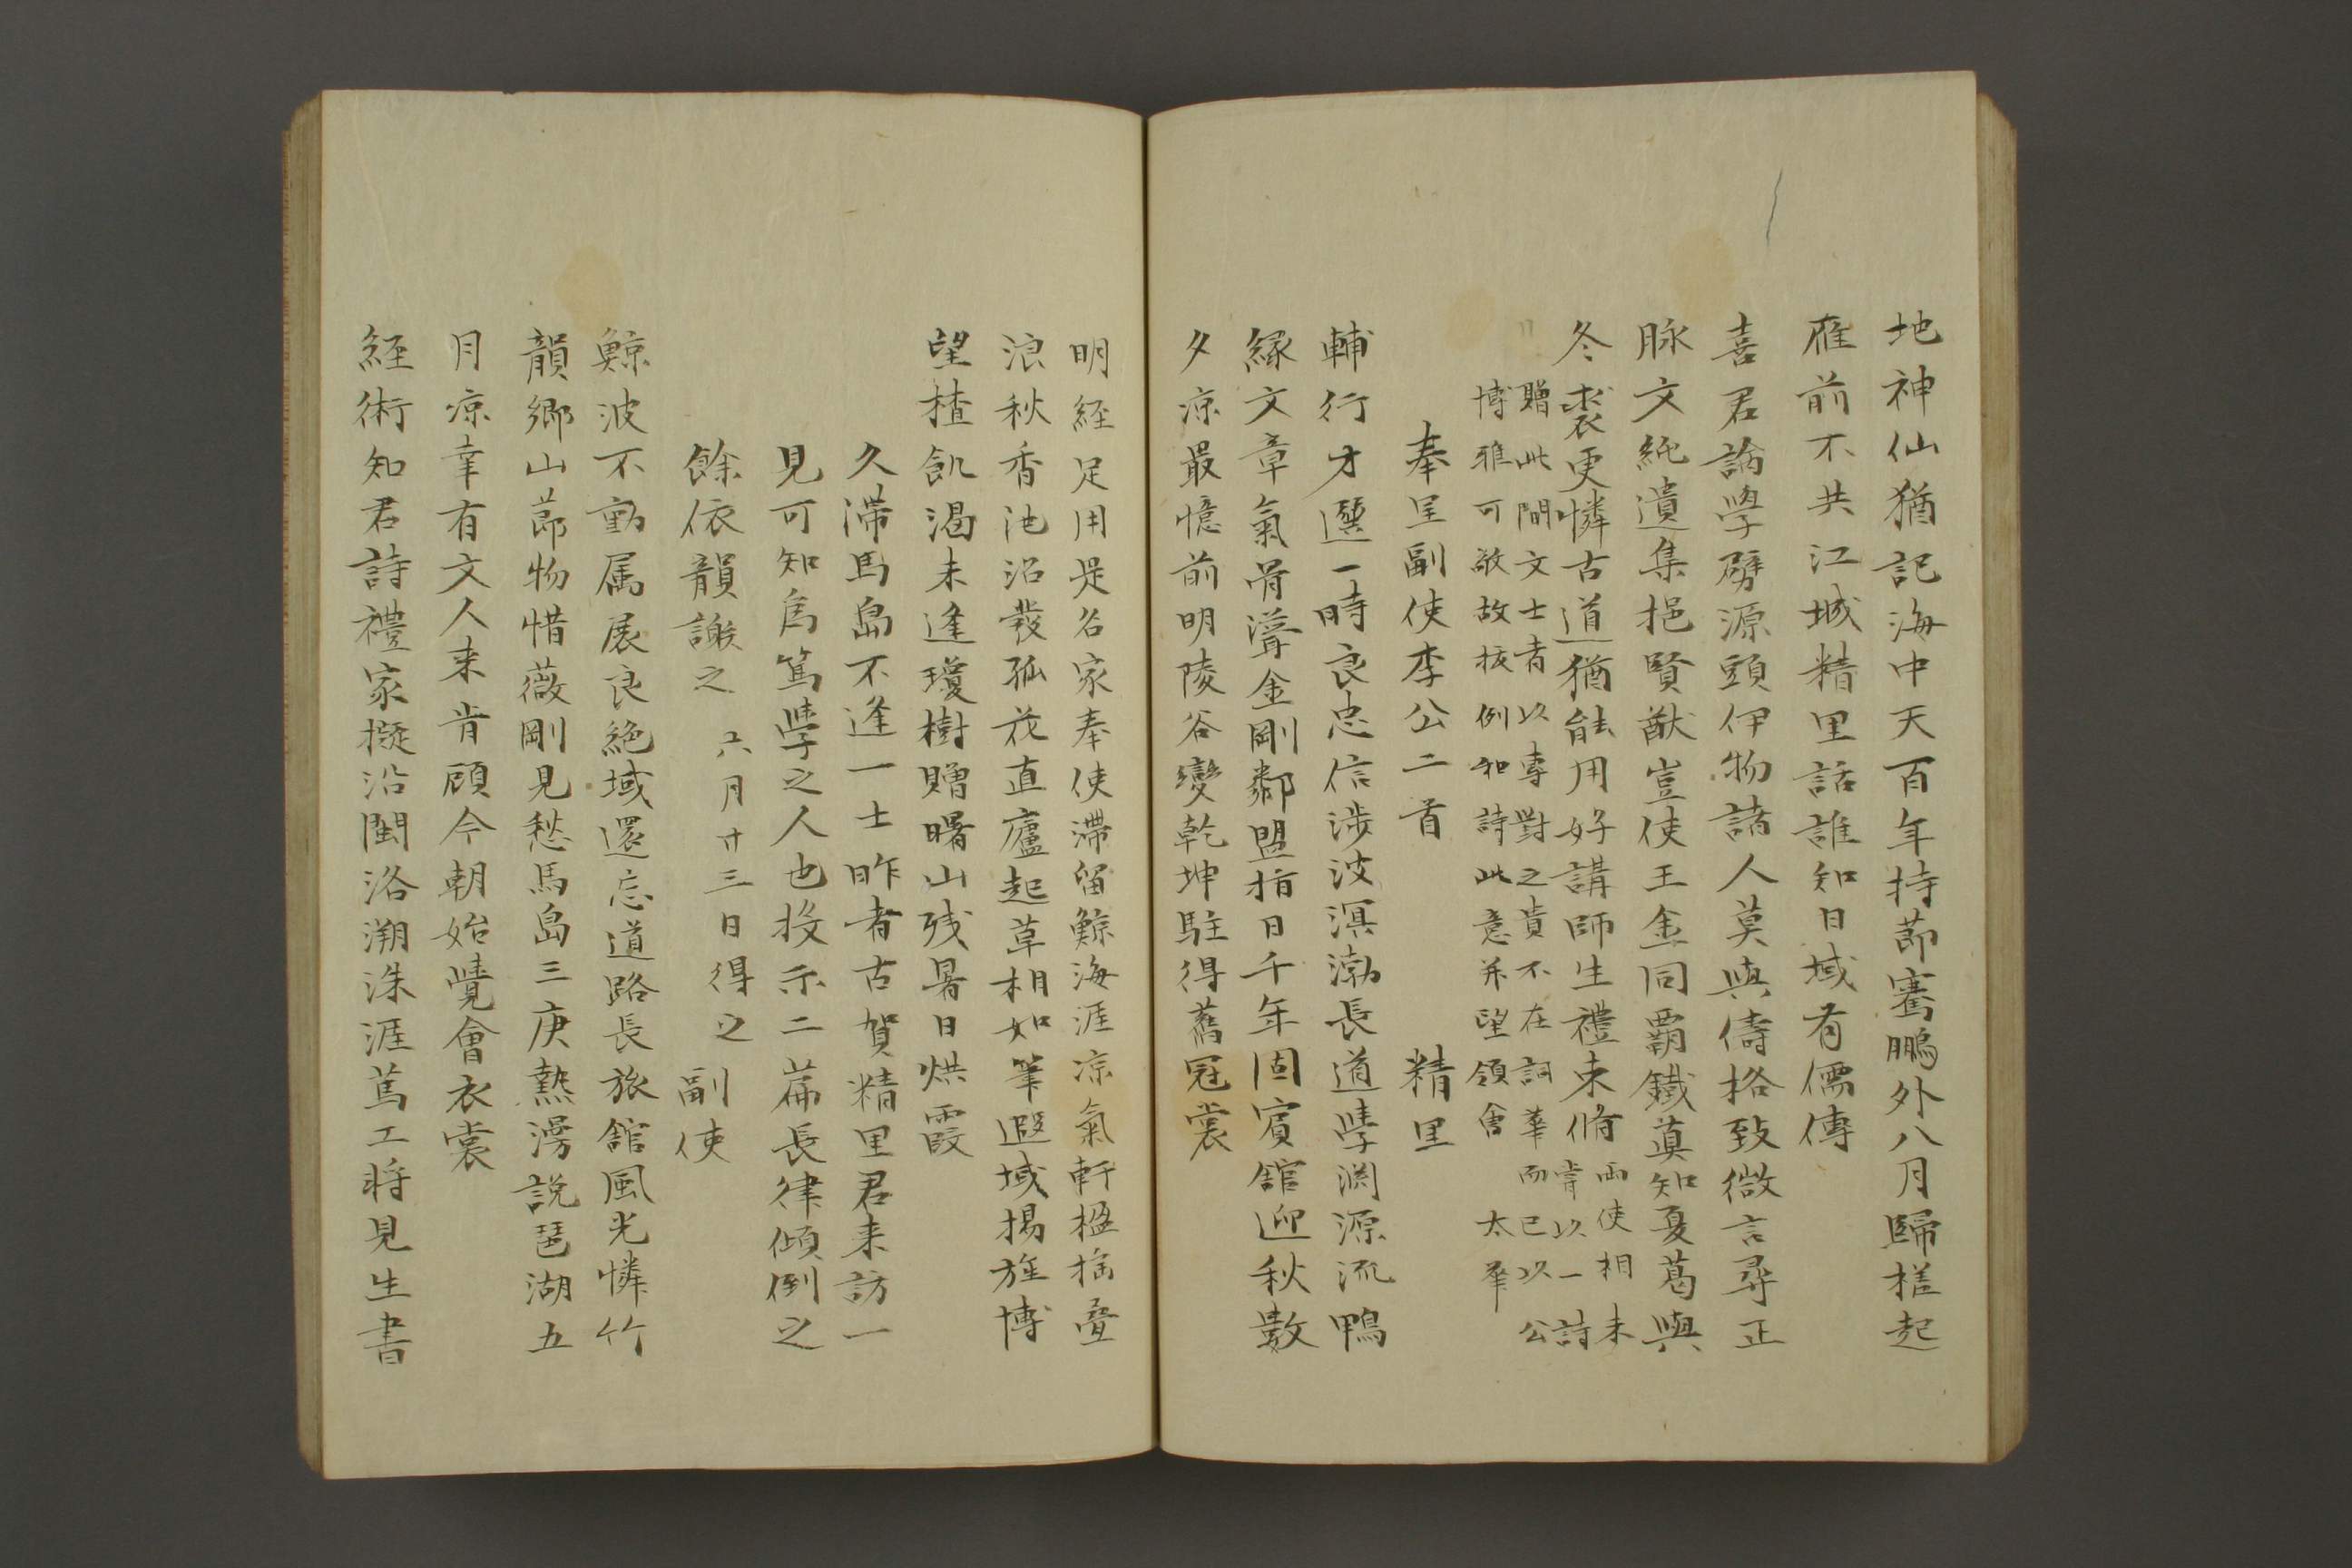 地神仙猶記海中天百年持莭騫鵬外八月歸槎起
雁前不共江城精里話誰知日域有儒傳
喜君論學劈源頭伊物諸人莫與儔格致微言尋正
脉文純遺集挹賢猷豈使王金同覇鐵真知夏葛與
冬裘更憐古道猶能用好講師生禮束脩
兩使相未
肯以一詩
贈此間文士者以專對之責不在詞華而已以公
博雅可敬故援例和詩此意并望領會 太華
奉呈副使李公二首 精里
輔行才選一時良忠信涉波溟渤長道學淵源流鴨
緑文章氣骨聳金剛鄰盟指日千年固賓舘迎秋數
夕凉最憶前明陵谷變乾坤駐得舊冠裳
明経足用是名家奉使滯留鯨海涯凉氣軒楹搖疊
浪秋香池沼發孤花直廬起草相如筆遐域揚旌博
望楂飢渴未逢瓊樹贈曙山残暑日烘霞
久滯馬島不逢一士昨者古賀精里君来訪一
見可知爲篤學之人也投示二萹長律傾倒之
餘依韻謝之 六月廿三日得之 副使
鯨波不動属展良絶域還忘道路長旅舘風光憐竹
韻鄉山莭物惜薇剛見愁馬島三庚熱漫說琶湖五
月凉幸有文人来肯顧今朝始覺會衣裳
経術知君詩禮家擬沿閩洛溯洙涯蔦工将見生書